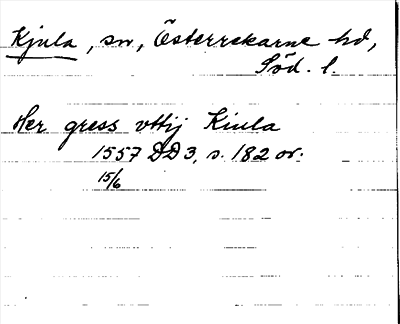 Kjula, sn, Österrekarne hd,
Söd. l.
Her gress vttij Kiula
1557 DD3, s. 182 or.
15/6